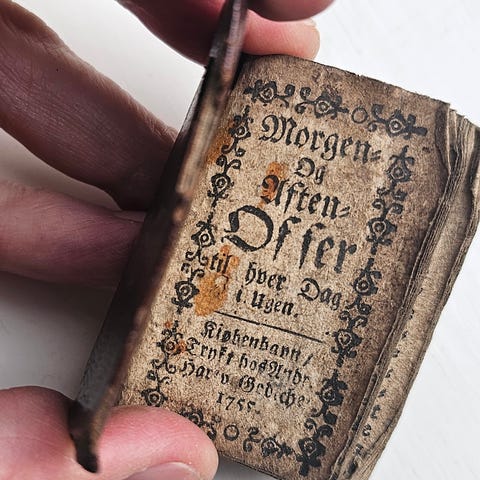 Morgen-
Og
Aften-
Offer
til hver Dag
i Ugen.
Kiøbenhavn /
Trykt hos Andr.
Hartv. Godiche.
1755.